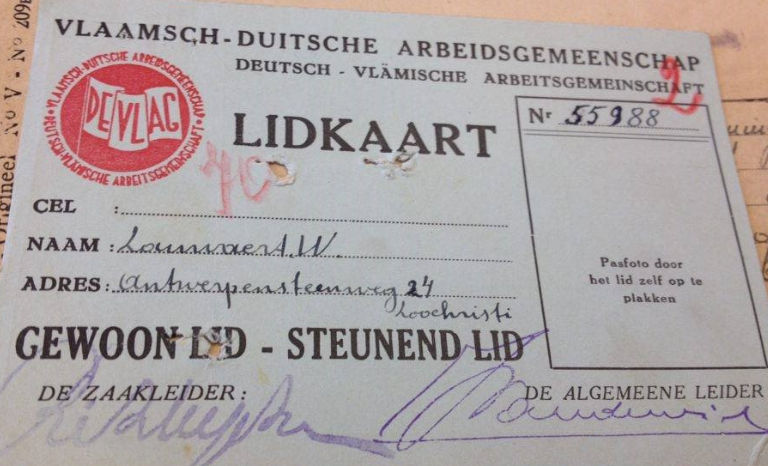 VLAAMSCH-DUITSCHE ARBEIDSGEMEENSCHAP
DEUTSCH - VLÄMISCHE ARBEITSGEMEINSCHAFT
2
VLAAMSCH-DUITSCHE ARBEIDSGEMEENSCHAP
DEVLAG
DEUTSCH-VLÄMISCHE ARBEITSGEMEINSCHAFT
LIDKAART
Nr 55988
70
CEL :
NAAM : W.
ADRES: Antwerpensteenweg 24
Loochristi
Pasfoto door
het lid zelf op te
plakken
GEWOON LID - STEUNEND LID
DE ZAAKLEIDER:
DE ALGEMEENE LEIDER
No V - No 209